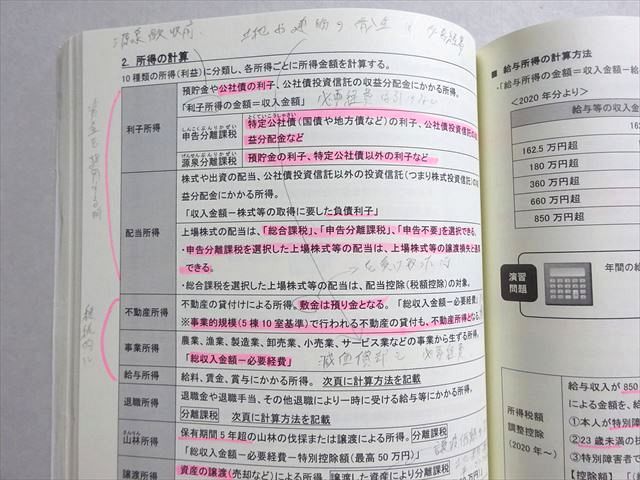 源泉徴収前
2. 所得の計算
10種類の所得(利益)に分類し、各所得ごとに所得金額を計算する。
利子所得
預貯金や公社債の利子、公社債投資信託の収益分配金にかかる所得。
「利子所得の金額＝収入金額」
しんこくぶんりかぜい
申告分離課税
とくていこうしゃさい
特定公社債(国債や地方債など)の利子、公社債投資信託の収
益分配金など
げんせんぶんりかぜい
源泉分離課税
預貯金の利子、特定公社債以外の利子など
配当所得
株式や出資の配当、公社債投資信託以外の投資信託(つまり株式投資信託)の収
益分配金にかかる所得。
「収入金額－株式等の取得に要した負債利子」
上場株式の配当は、「総合課税」、「申告分離課税」、「申告不要」を選択できる。
・申告分離課税を選択した上場株式等の配当は、上場株式等の譲渡損失と通算
できる。
・総合課税を選択した上場株式等の配当は、配当控除(税額控除)の対象。
不動産所得
不動産の貸付けによる所得、敷金は預り金となる。「総収入金額－必要経費」
※事業的規模(5棟10室基準)で行われる不動産の貸付も、不動産所得となる。
事業所得
農業、漁業、製造業、卸売業、小売業、サービス業などの事業から生ずる所得。
「総収入金額－必要経費」
減価償却も 必要経費
給与所得
給料、賃金、賞与にかかる所得。 次頁に計算方法を記載
退職所得
退職金や退職手当、その他退職により一時に受ける給与等にかかる所得。
分離課税 次頁に計算方法を記載
さんりん
山林所得
保有期間5年超の山林の伐採または譲渡による所得。分離課税
「総収入金額－必要経費－特別控除額(最高50万円)」
譲渡所得
資産の譲渡(売却など)による所得。譲渡した資産により分離課税
■ 給与所得の計算方法
・「給与所得の金額＝収入金額－給
＜2020年分より＞
給与等の収入金
162.5万円超
180万円超
360万円超
660万円超
850万円超
演習
問題
年間の給
所得税額
調整控除
(2020年～)
給与収入が850
による金額を、給
①本人が特別障
②23歳未満の
③特別障害者で